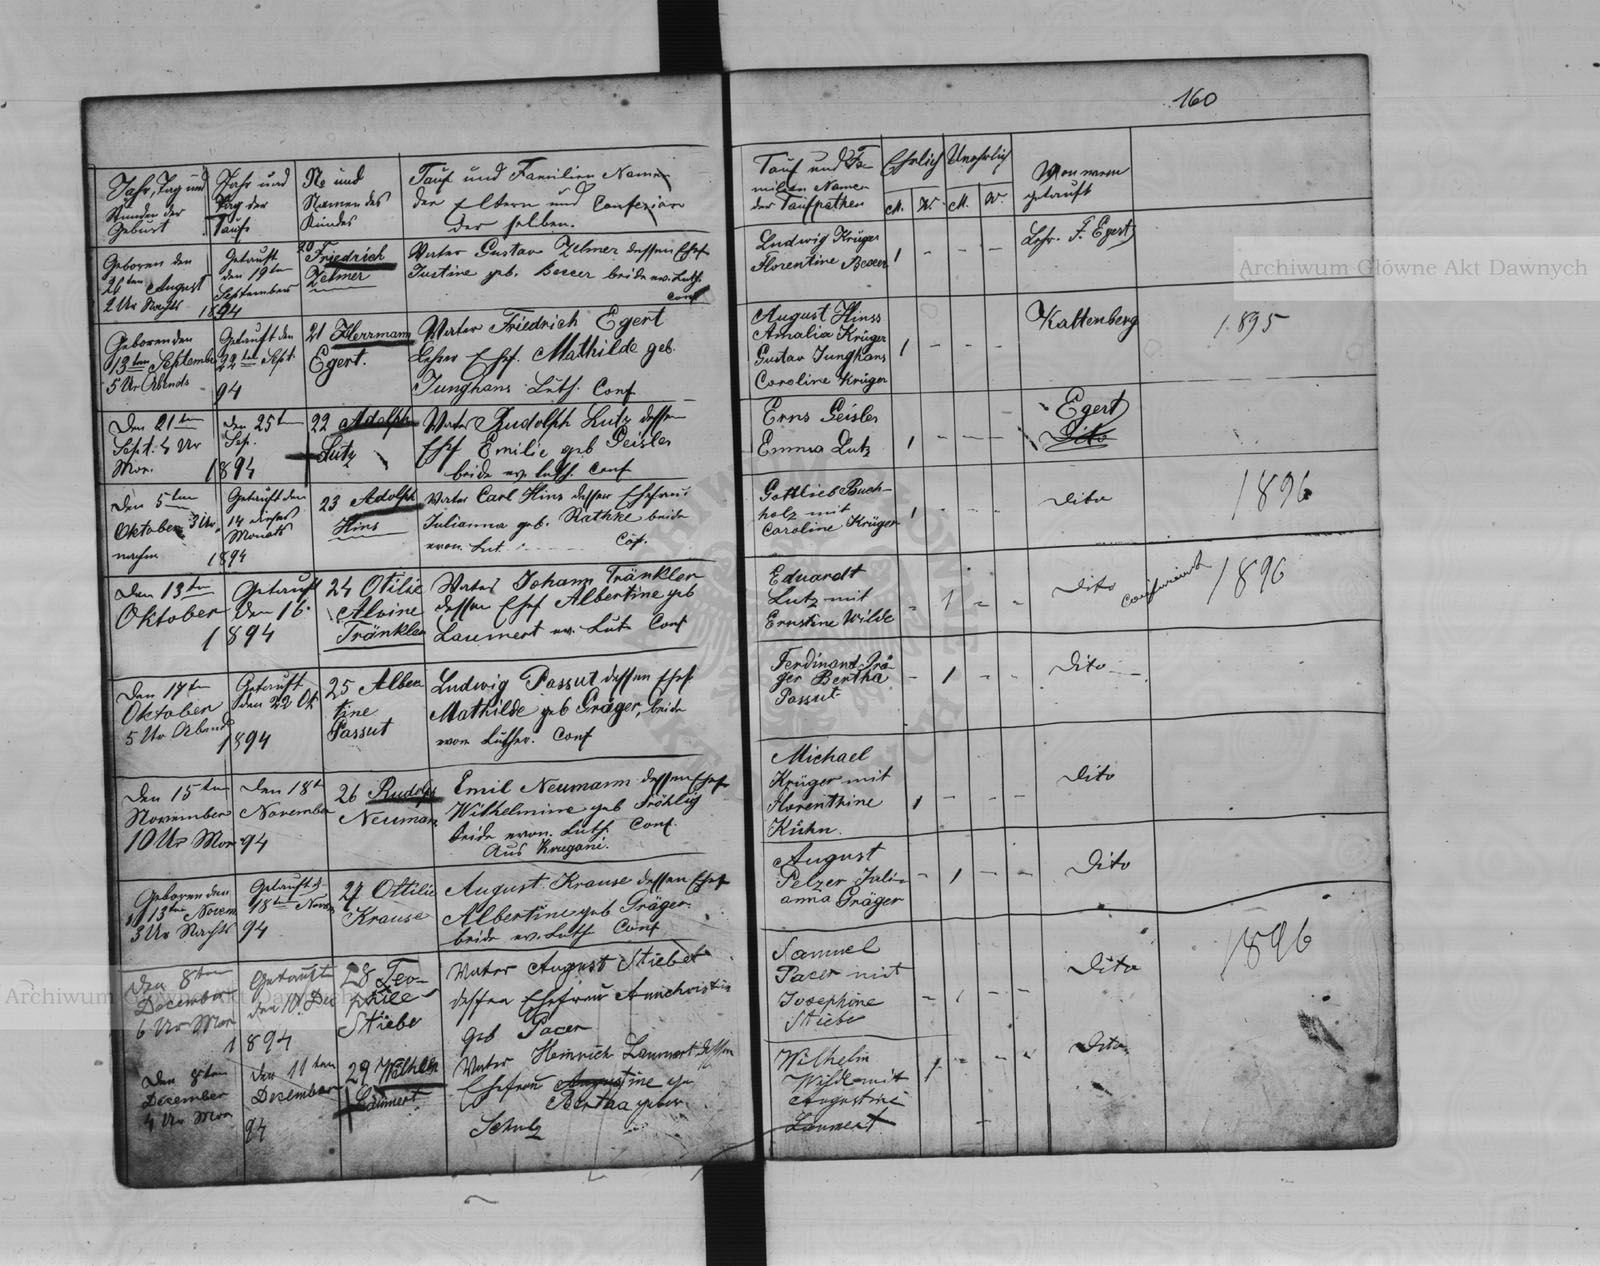 160
Jahr, Tag und
Stunden der
Geburt
Jahr und
Tag der
Taufe
No und
Namen des
Kindes
Tauf und Familien Namen
der Eltern und Confession
der selben.
Tauf und Fa-
milien Namen
der Taufpathen
Ehrlich
Unehrlich
M. W. M. W.
Von wem
getauft
Geboren den
26ten August
2 Ur Nachts
Getauft
den 19ten
September
1894
20 Friedrich
Zelmer
Vater Gustav Zelmer dessen Ehef
Justine geb. Becer beide ev. Luth.
Conf
Ludwig Krüger
Florentine Becer
1 - - -
Lehr. F. Egert
Geboren den
13ten September
5 Ur Abends
Getauft den
22ten Sept.
94
21 Herrmann
Egert.
Vater Friedrich Egert
Lehrer Ehef. Mathilde geb.
Junghans Luth. Conf
August Hinss
Amalia Krüger
Gustav Junghans
Caroline Krüger
1 - - -
Kaltenberg
1895
Den 21ten
Sept. 4 Ur
Mor.
den 25t
Sep.
1894
22 Adolph
Lutz
Vater Rudolph Lutz dessen
Ehef Emilie geb Geisler
beide ev. Luth. Conf
Erns Geisler
Emma Lutz
1 - - -
Egert
Dito
Den 5ten
Oktober 3 Ur
nachm
Getauft den
14 dieses
Monats
1894
23 Adolph
Hins
Vater Carl Hins dessen Ehefrau
Julianna geb. Rathke beide
evan. Lut. Cof.
Gottlieb Buch-
holz mit
Caroline Krüger
1 - - -
Dito
1896
Den 13ten
Oktober
Getauft
den 16.
1894
24 Otilie
Alvine
Tränkler
Vater Johann Tränkler
dessen Ehef Albertine geb
Laumert ev. Lut. Conf
Eduardt
Lutz mit
Ernstine Wilde
- 1 - -
Dito
1896
Den 17ten
Oktober
5 Ur Abend
Getauft
den 22 Ok
1894
25 Alber
tine
Passut
Ludwig Passut dessen Ehef
Mathilde geb Gräger, beide
evan Luther. Conf
Ferdinand Grä-
ger Bertha
Passut
- 1 - -
Dito
Den 15ten
November
10 Ur Mor
Den 18t
November
94
26 Rudolf
Neumann
Emil Neumann dessen Ehef
Wilhelmine geb Fröhlig
beide evan. Luth. Conf.
Aus Krugani.
Michael
Krüger mit
Florenthine
Kühn.
1 - - -
Dito
Geboren den
13ten Novem
3 Ur Nachts
Getauft d.
18ten Novem
94
27 Ottilie
Krause
August Krause dessen Ehef
Albertine geb Gräger
beide ev. Luth. Conf
August
Pelzer Juli-
anna Gräger
- 1 - -
Dito
Den 8ten
December
6 Ur Mor
Getauft
den 10. Dec
1894
28 Teo-
philé
Stiebe
Vater August Stiebe
dessen Ehefrau Annchristin
geb Pacer
Samuel
Pacer mit
Josephine
Stiebe
- 1 - -
Dito
1896
Den 8ten
December
4 Ur Mor
Den 11ten
Desember
94
29 Wilhelm
Laumert
Vater Heinrich Laumert dessen
Ehefrau Augustine ge
Bertha geber
Schulz
Wilhelm
Wilde mit
Augustine
Laumert
1 - - -
Dito
Archiwum Główne Akt Dawnych
Archiwum Główne Akt Dawnych